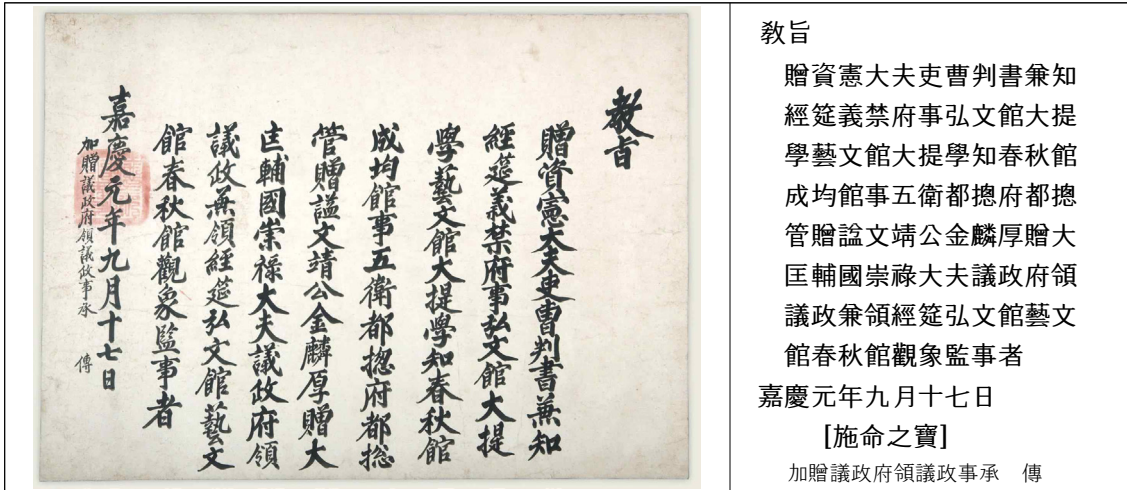 敎旨
贈資憲大夫吏曹判書兼知
經筵義禁府事弘文館大提
學藝文館大提學知春秋館
成均館事五衛都摠府都摠
管贈諡文靖公金麟厚贈大
匡輔國崇祿大夫議政府領
議政兼領經筵弘文館藝文
館春秋館觀象監事者
嘉慶元年九月十七日
加贈議政府領議政事承 傳
敎旨
贈資憲大夫吏曹判書兼知
經筵義禁府事弘文館大提
學藝文館大提學知春秋館
成均館事五衛都摠府都摠
管贈諡文靖公金麟厚贈大
匡輔國崇祿大夫議政府領
議政兼領經筵弘文館藝文
館春秋館觀象監事者
嘉慶元年九月十七日
[施命之寶]
加贈議政府領議政事承 傳